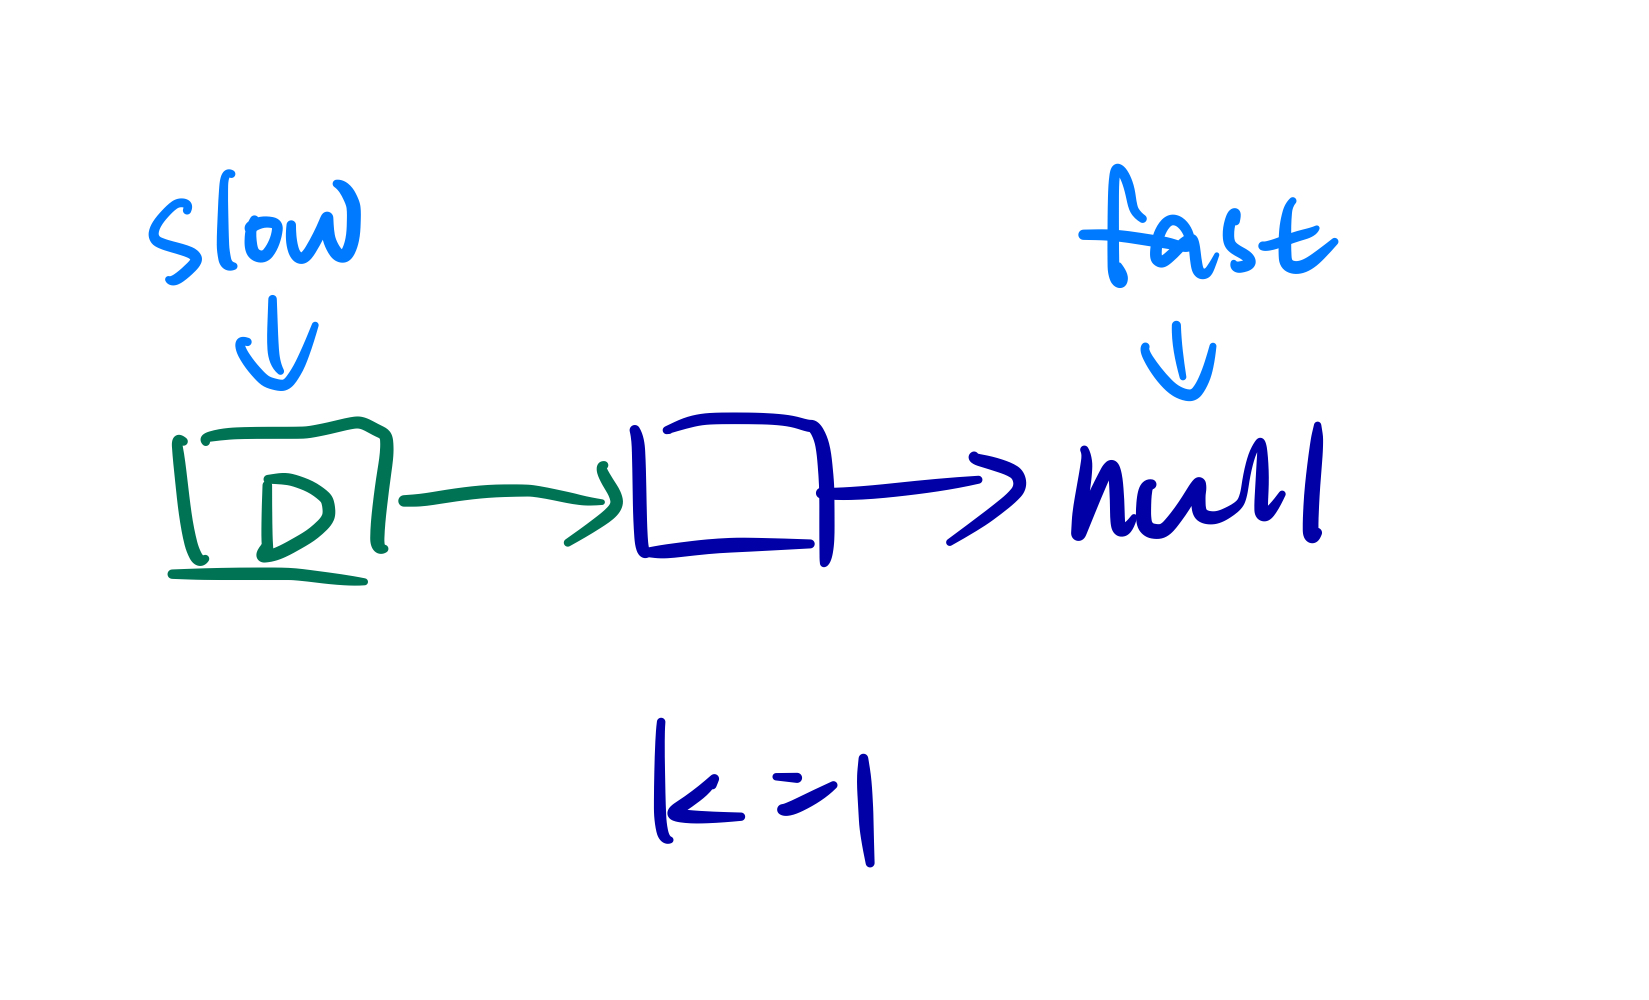 slow fast
D null
k=1